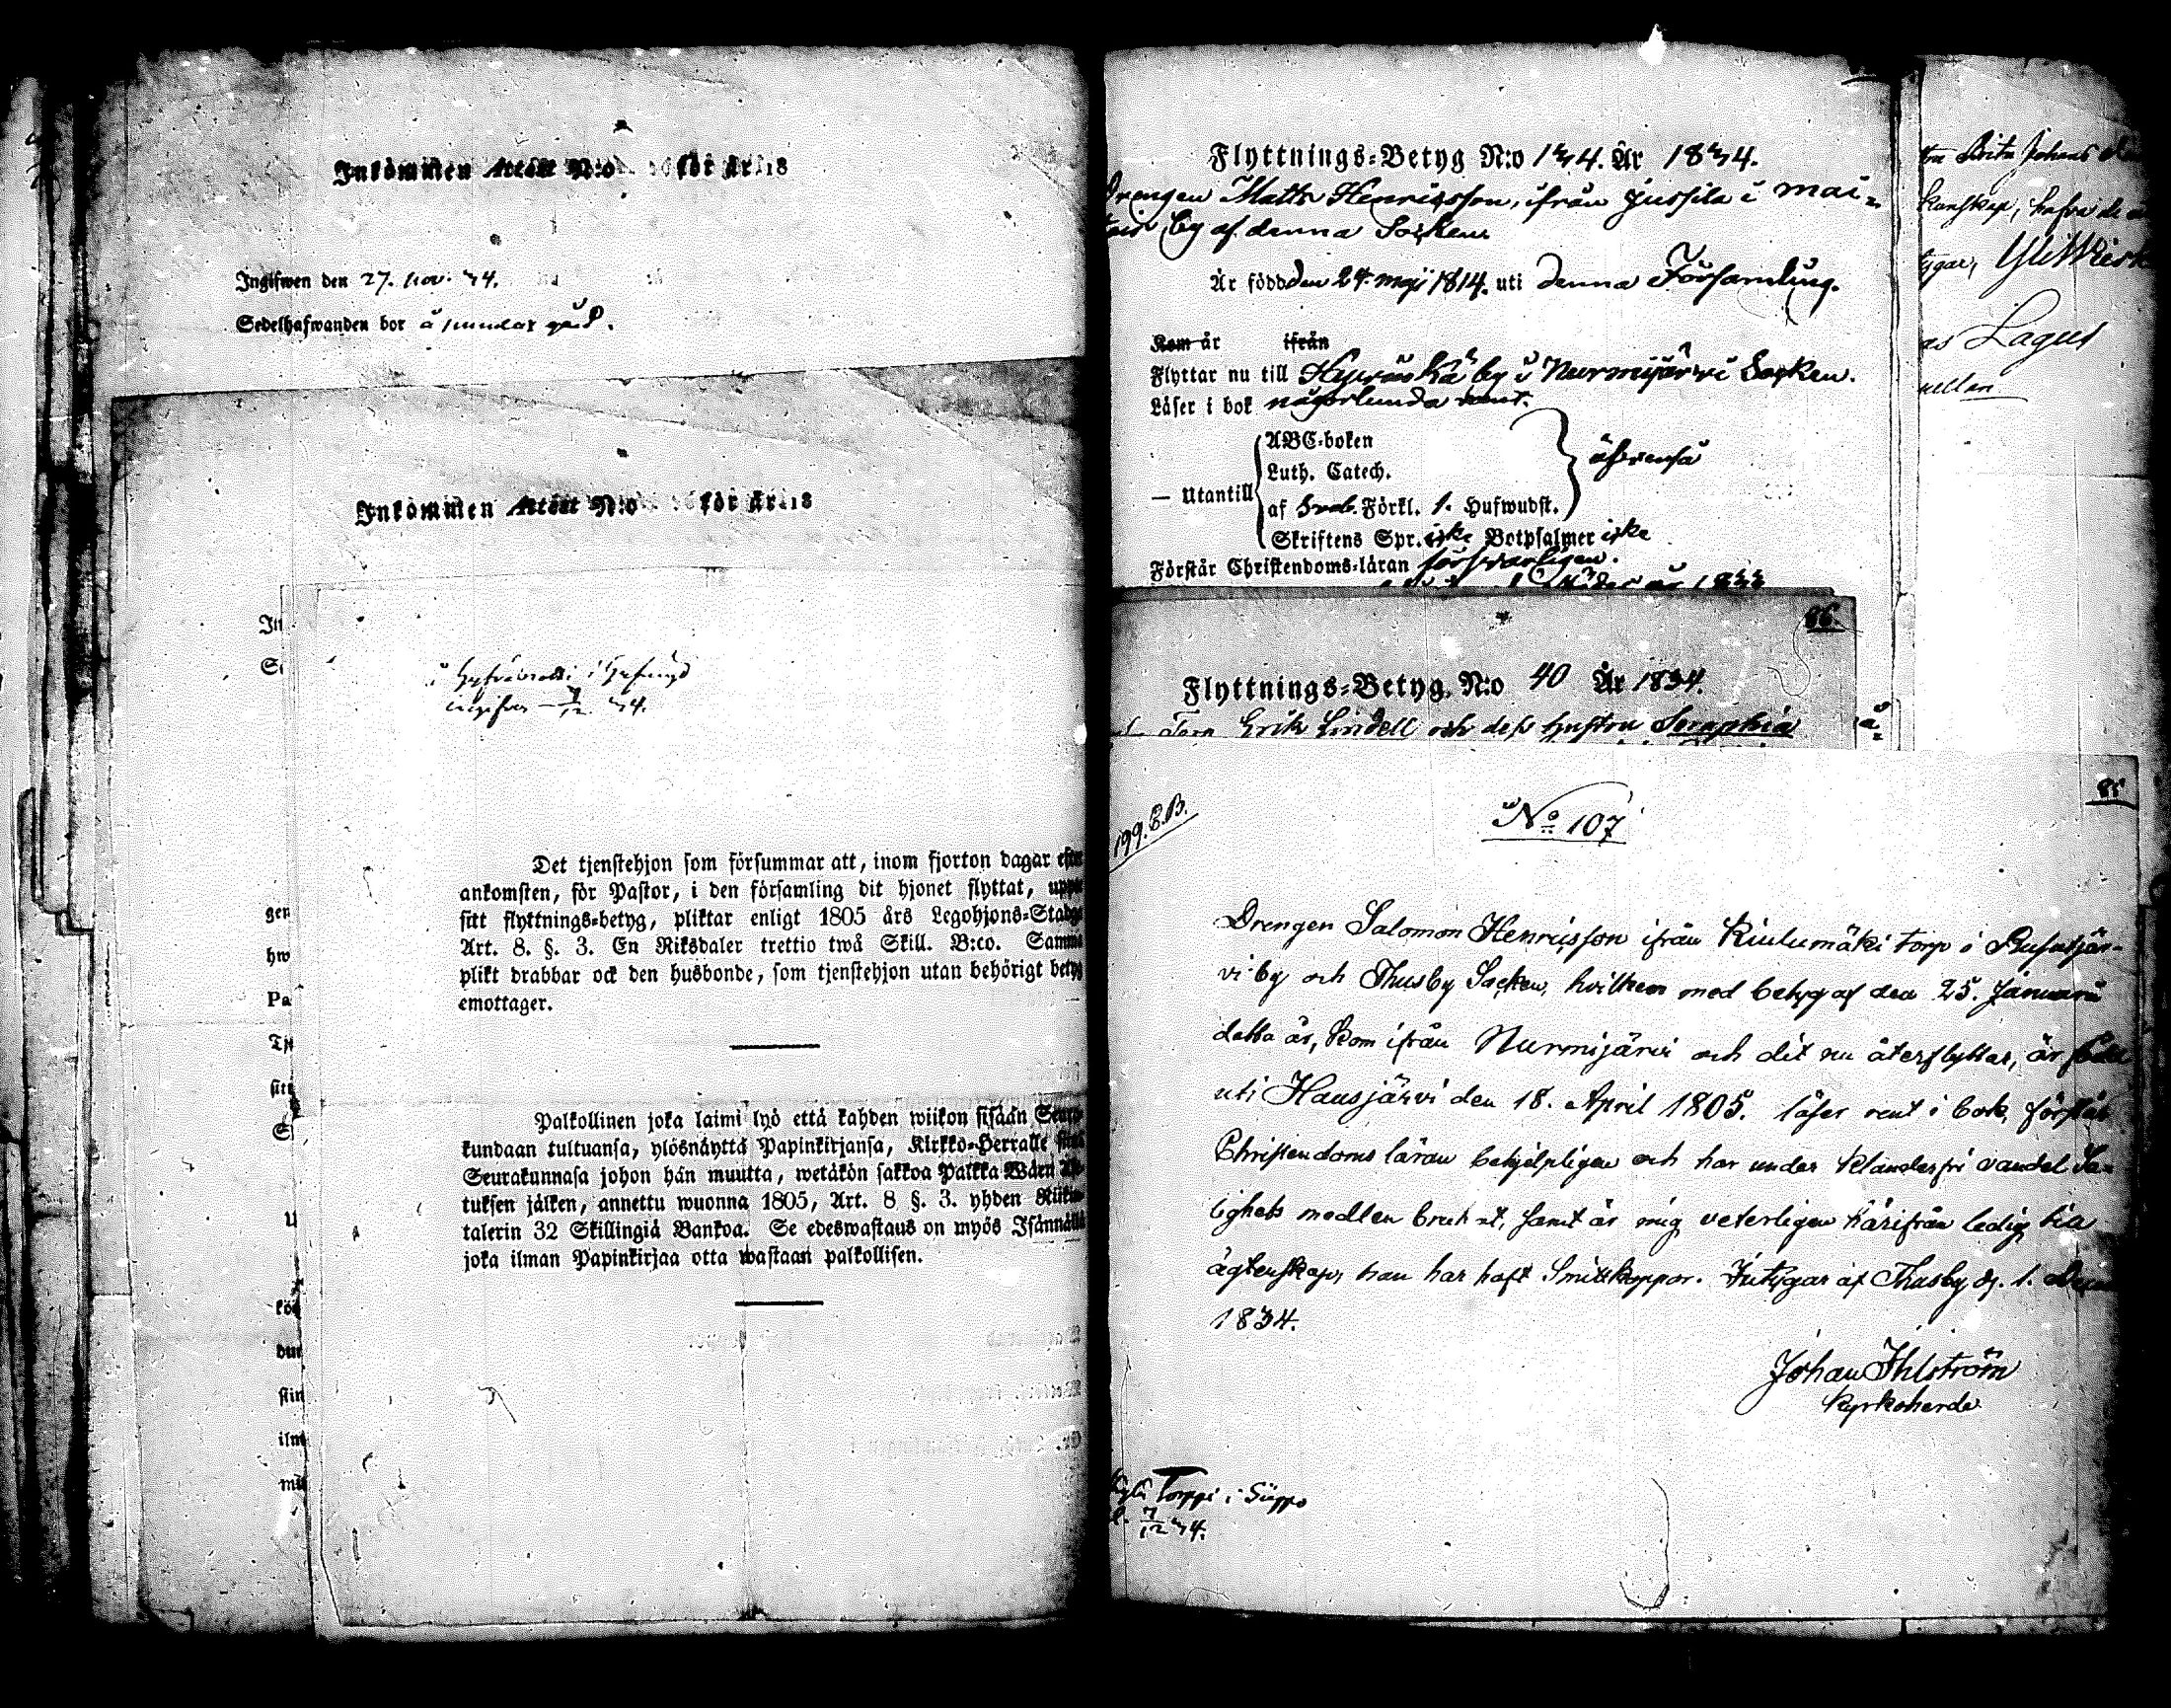 Inkommen Attest N:o för år 18
Ingifwen den 27. nov. 34.
Sedelhafwanden bor å
Inkommen Attest N:o för år 18
In
S
gen
hw
Pa
Tj
sitt
kö
dur
stin
iln
i
ingifven 7/12 34.
Det tjenstehjon som försummar att, inom fjorton dagar efter
ankomsten, för Pastor, i den församling dit hjonet flyttat, uppe
sitt flyttnings-betyg, pliktar enligt 1805 års Legohjons-Stadga
Art. 8. §. 3. En Riksdaler trettio twå Skill. B:co. Samma
plikt drabbar ock den husbonde, som tjenstehjon utan behörigt betyg
emottager.
Palkollinen joka laimi lyö että kahden wiikon sisään Seura-
kundaan tultuansa, ylösnäyttä Papinkirjansa, Kirkko-Herralle siinä
Seurakunnasa johon hän muutta, wetäkön sakkoa Palkka Wäen
tuksen jälken, annettu wuonna 1805, Art. 8 §. 3. yhden Riikin-
talerin 32 Skillingiä Bankoa. Se edeswastaus on myös Isännällä
joka ilman Papinkirjaa otta wastaan palkollisen.
Flyttnings-Betyg N:o 134. År 1834.
Drengen Matts Henricsson, ifrån Jussila i Mai-
by af denna Socken
Är född den 24. maji 1814. uti denna Församling.
Kom år ifrån
Flyttar nu till Hyvinkä by i Nurmijärvi Socken.
Läser i bok någorlunda rent.
— Utantill
ABC-boken
Luth. Catech.
af Sveb. Förkl. 1. Hufwudst.
Skriftens Spr. icke Botpsalmer icke
Förstår Christendoms-läran försvarligen.
86.
Flyttnings-Betyg N:o 40 År 1834.
Erik Lindell och dess hustru Seraphia
tra Brita Johans
kunskap, hafva de
ygar,
as Lagus
85
199. E.B.
No 107
Drengen Salomon Henricsson ifrån Kiulumäki torp i Rusutjär-
vi by och Thusby Socken, hvilken med betyg af den 25. Januarii
detta år, kom ifrån Nurmijärvi och dit nu återflyttar, är född
uti Hausjärvi den 18. April 1805. läser rent i bok, förstår
Christendoms läran behjelpligen och har under klanderfri vandel Sa-
lighets medlen brukat, samt är mig veterligen härifrån ledig till
ägtenskap, han har haft Smittkoppor. Intygar af Thusby d. 1. Decem
1834.
Johan Ihlström
Kyrkoherde
Torppi i Siippo
7/12 34.